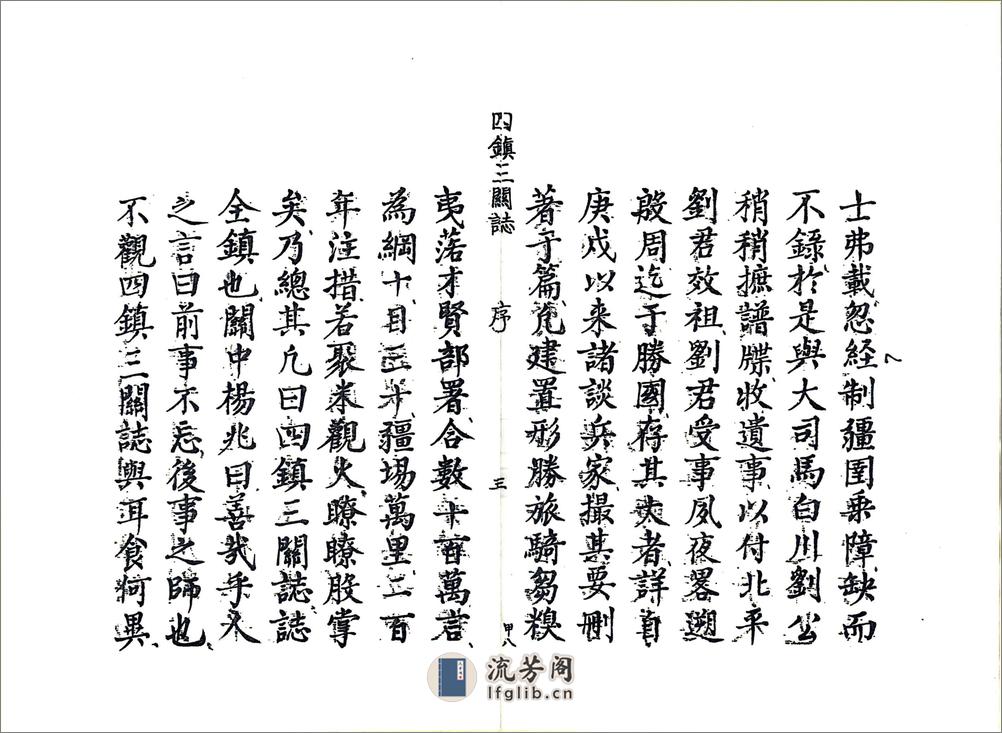 士弗載忽経制疆圉乘障缺而
不錄於是與大司馬白川劉公
稍稍摭譜牒收遺事以付北平
劉君效祖劉君受事夙夜畧遡
殷周迄于勝國存其大者詳自
庚戌以来諸談兵家撮其要刪
著于篇凡建置形勝旅騎芻糗
四鎮三關誌
序
三
甲八
夷落才賢部署合數十百萬言
為綱十目三十疆場萬里二百
年注措若聚米觀火瞭瞭股掌
矣乃總其凡曰四鎮三關誌誌
全鎮也關中楊兆曰善哉乎人
之言曰前事不忘後事之師也
不觀四鎮三關誌與耳食何異
流芳阁
lfglib.cn